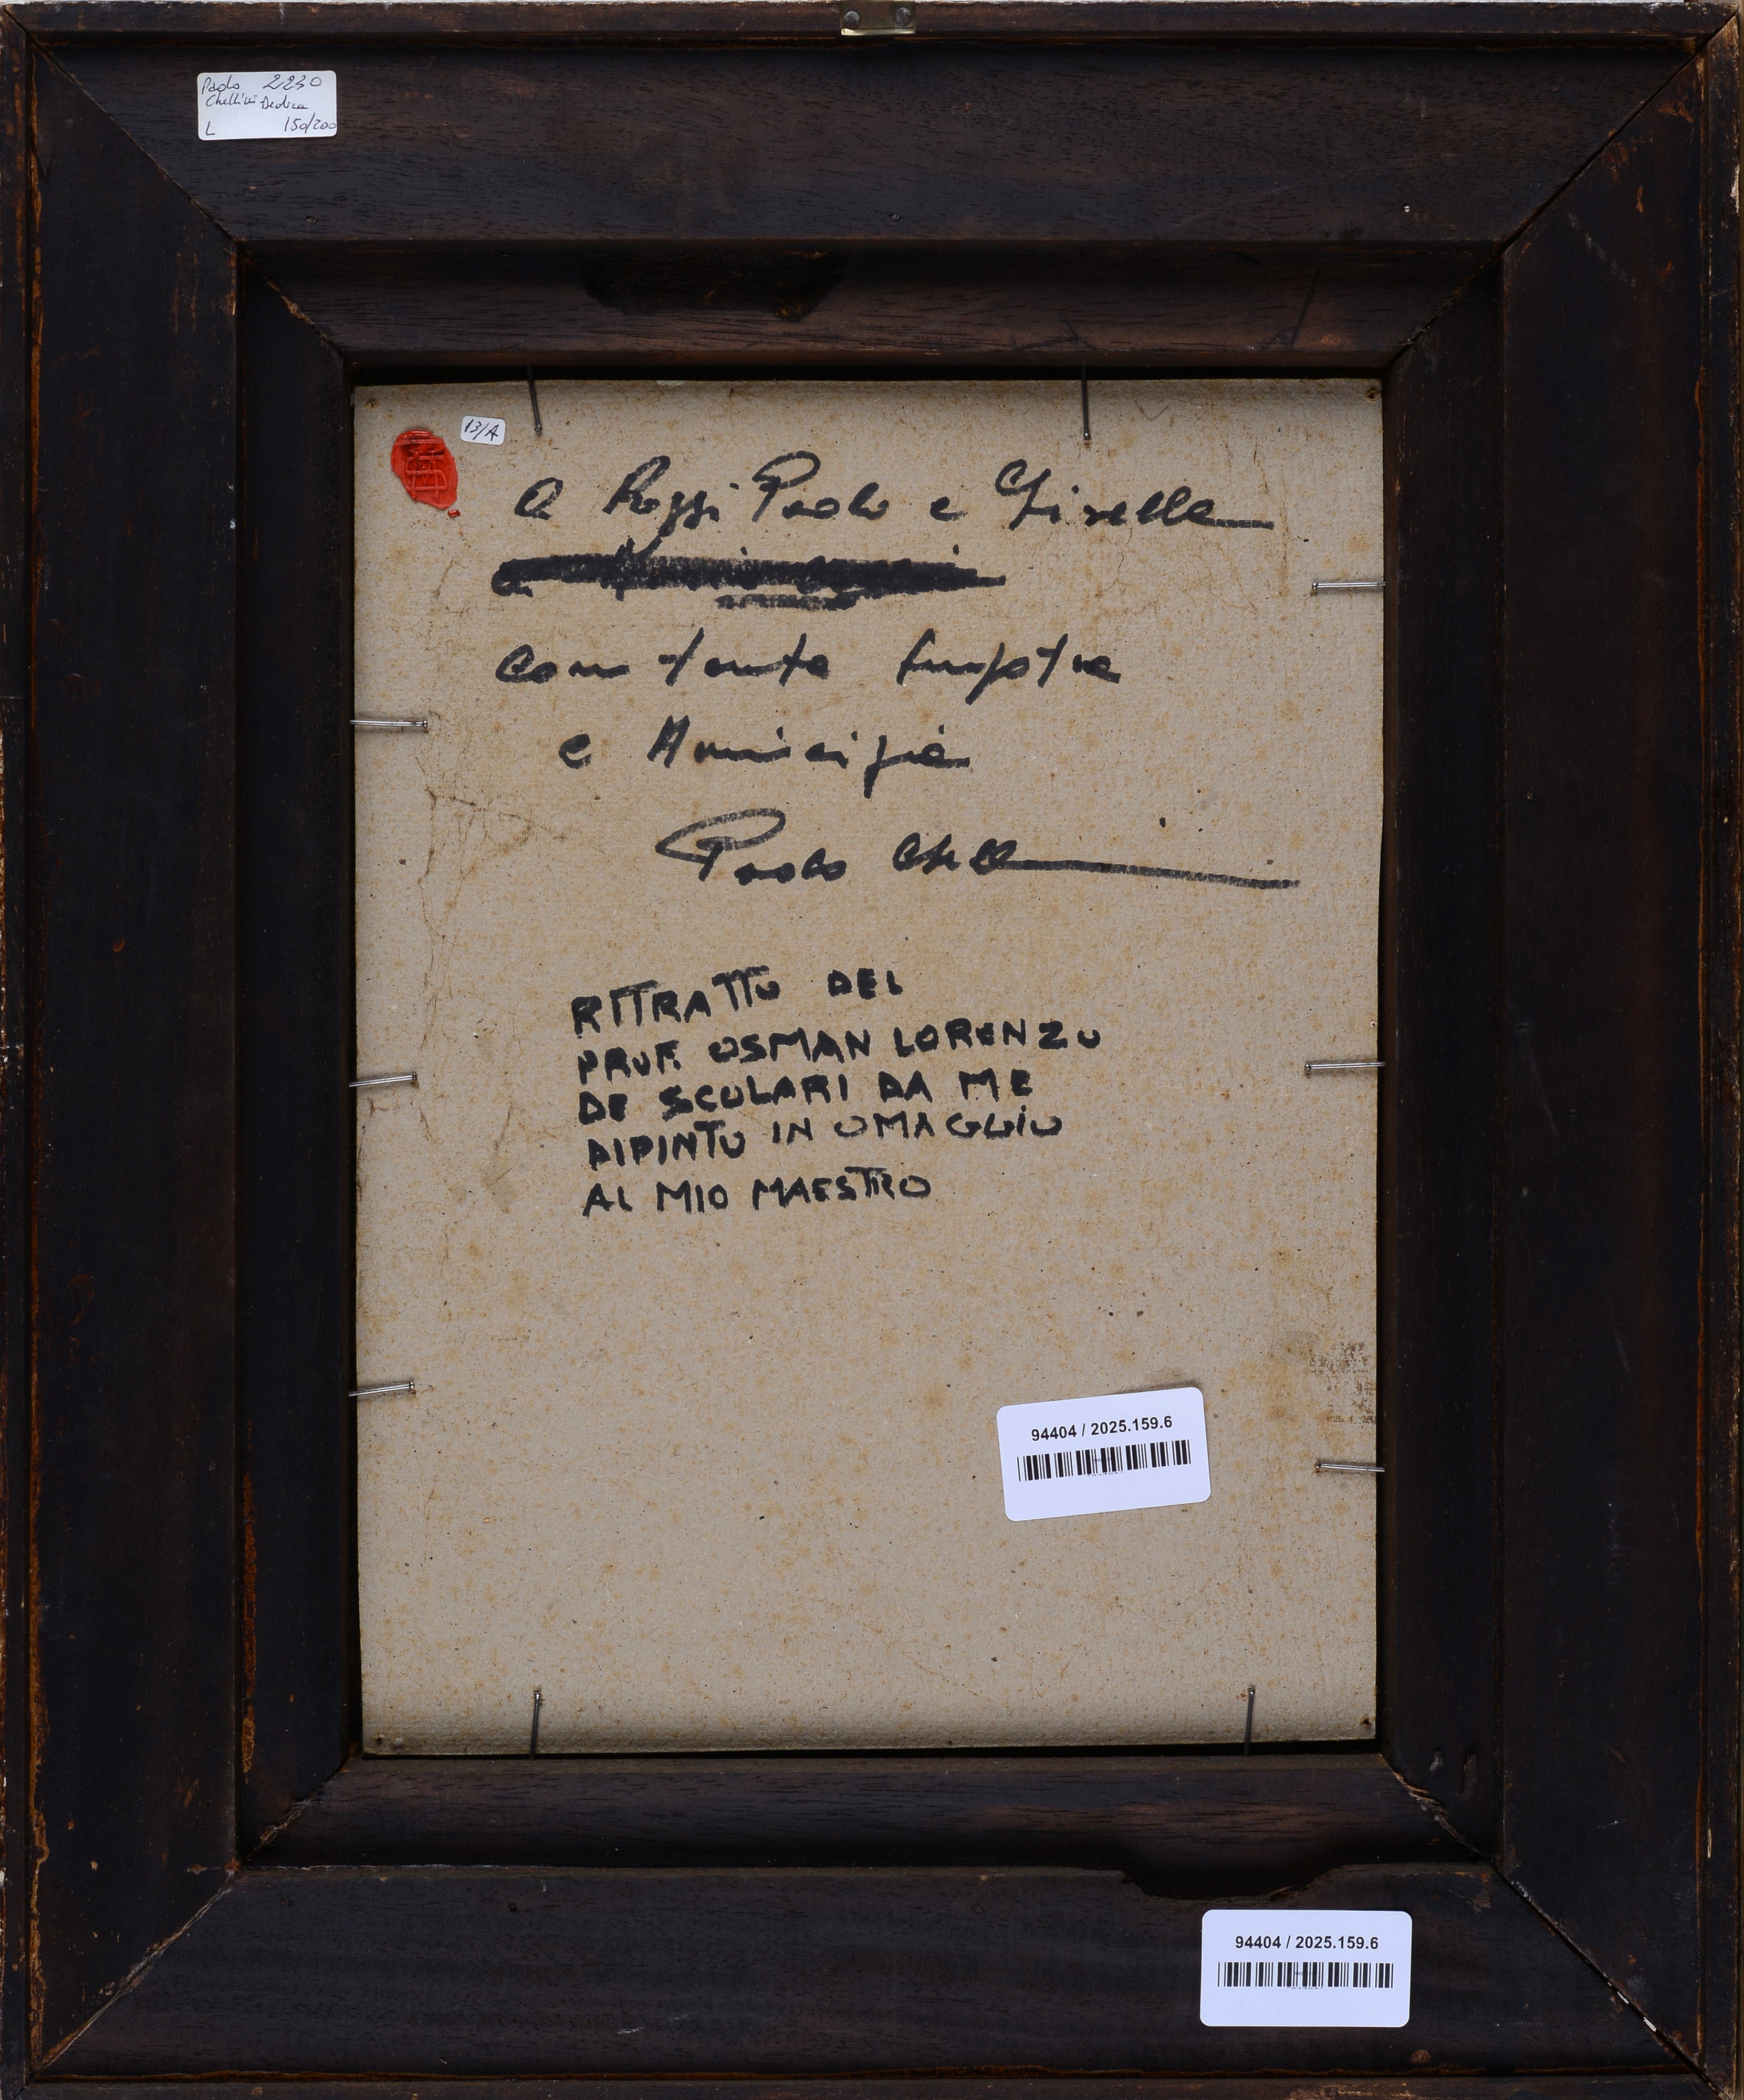 Paolo 2230
Chellini Dedica
L 150/200
13/A
A Rossi Paolo e Gisella
a
con tanta simpatia
e Amicizia
Paolo Chellini
RITRATTO DEL
PROF. OSMAN LORENZO
DE SCOLARI DA ME
DIPINTO IN OMAGGIO
AL MIO MAESTRO
94404 / 2025.159.6
94404 / 2025.159.6